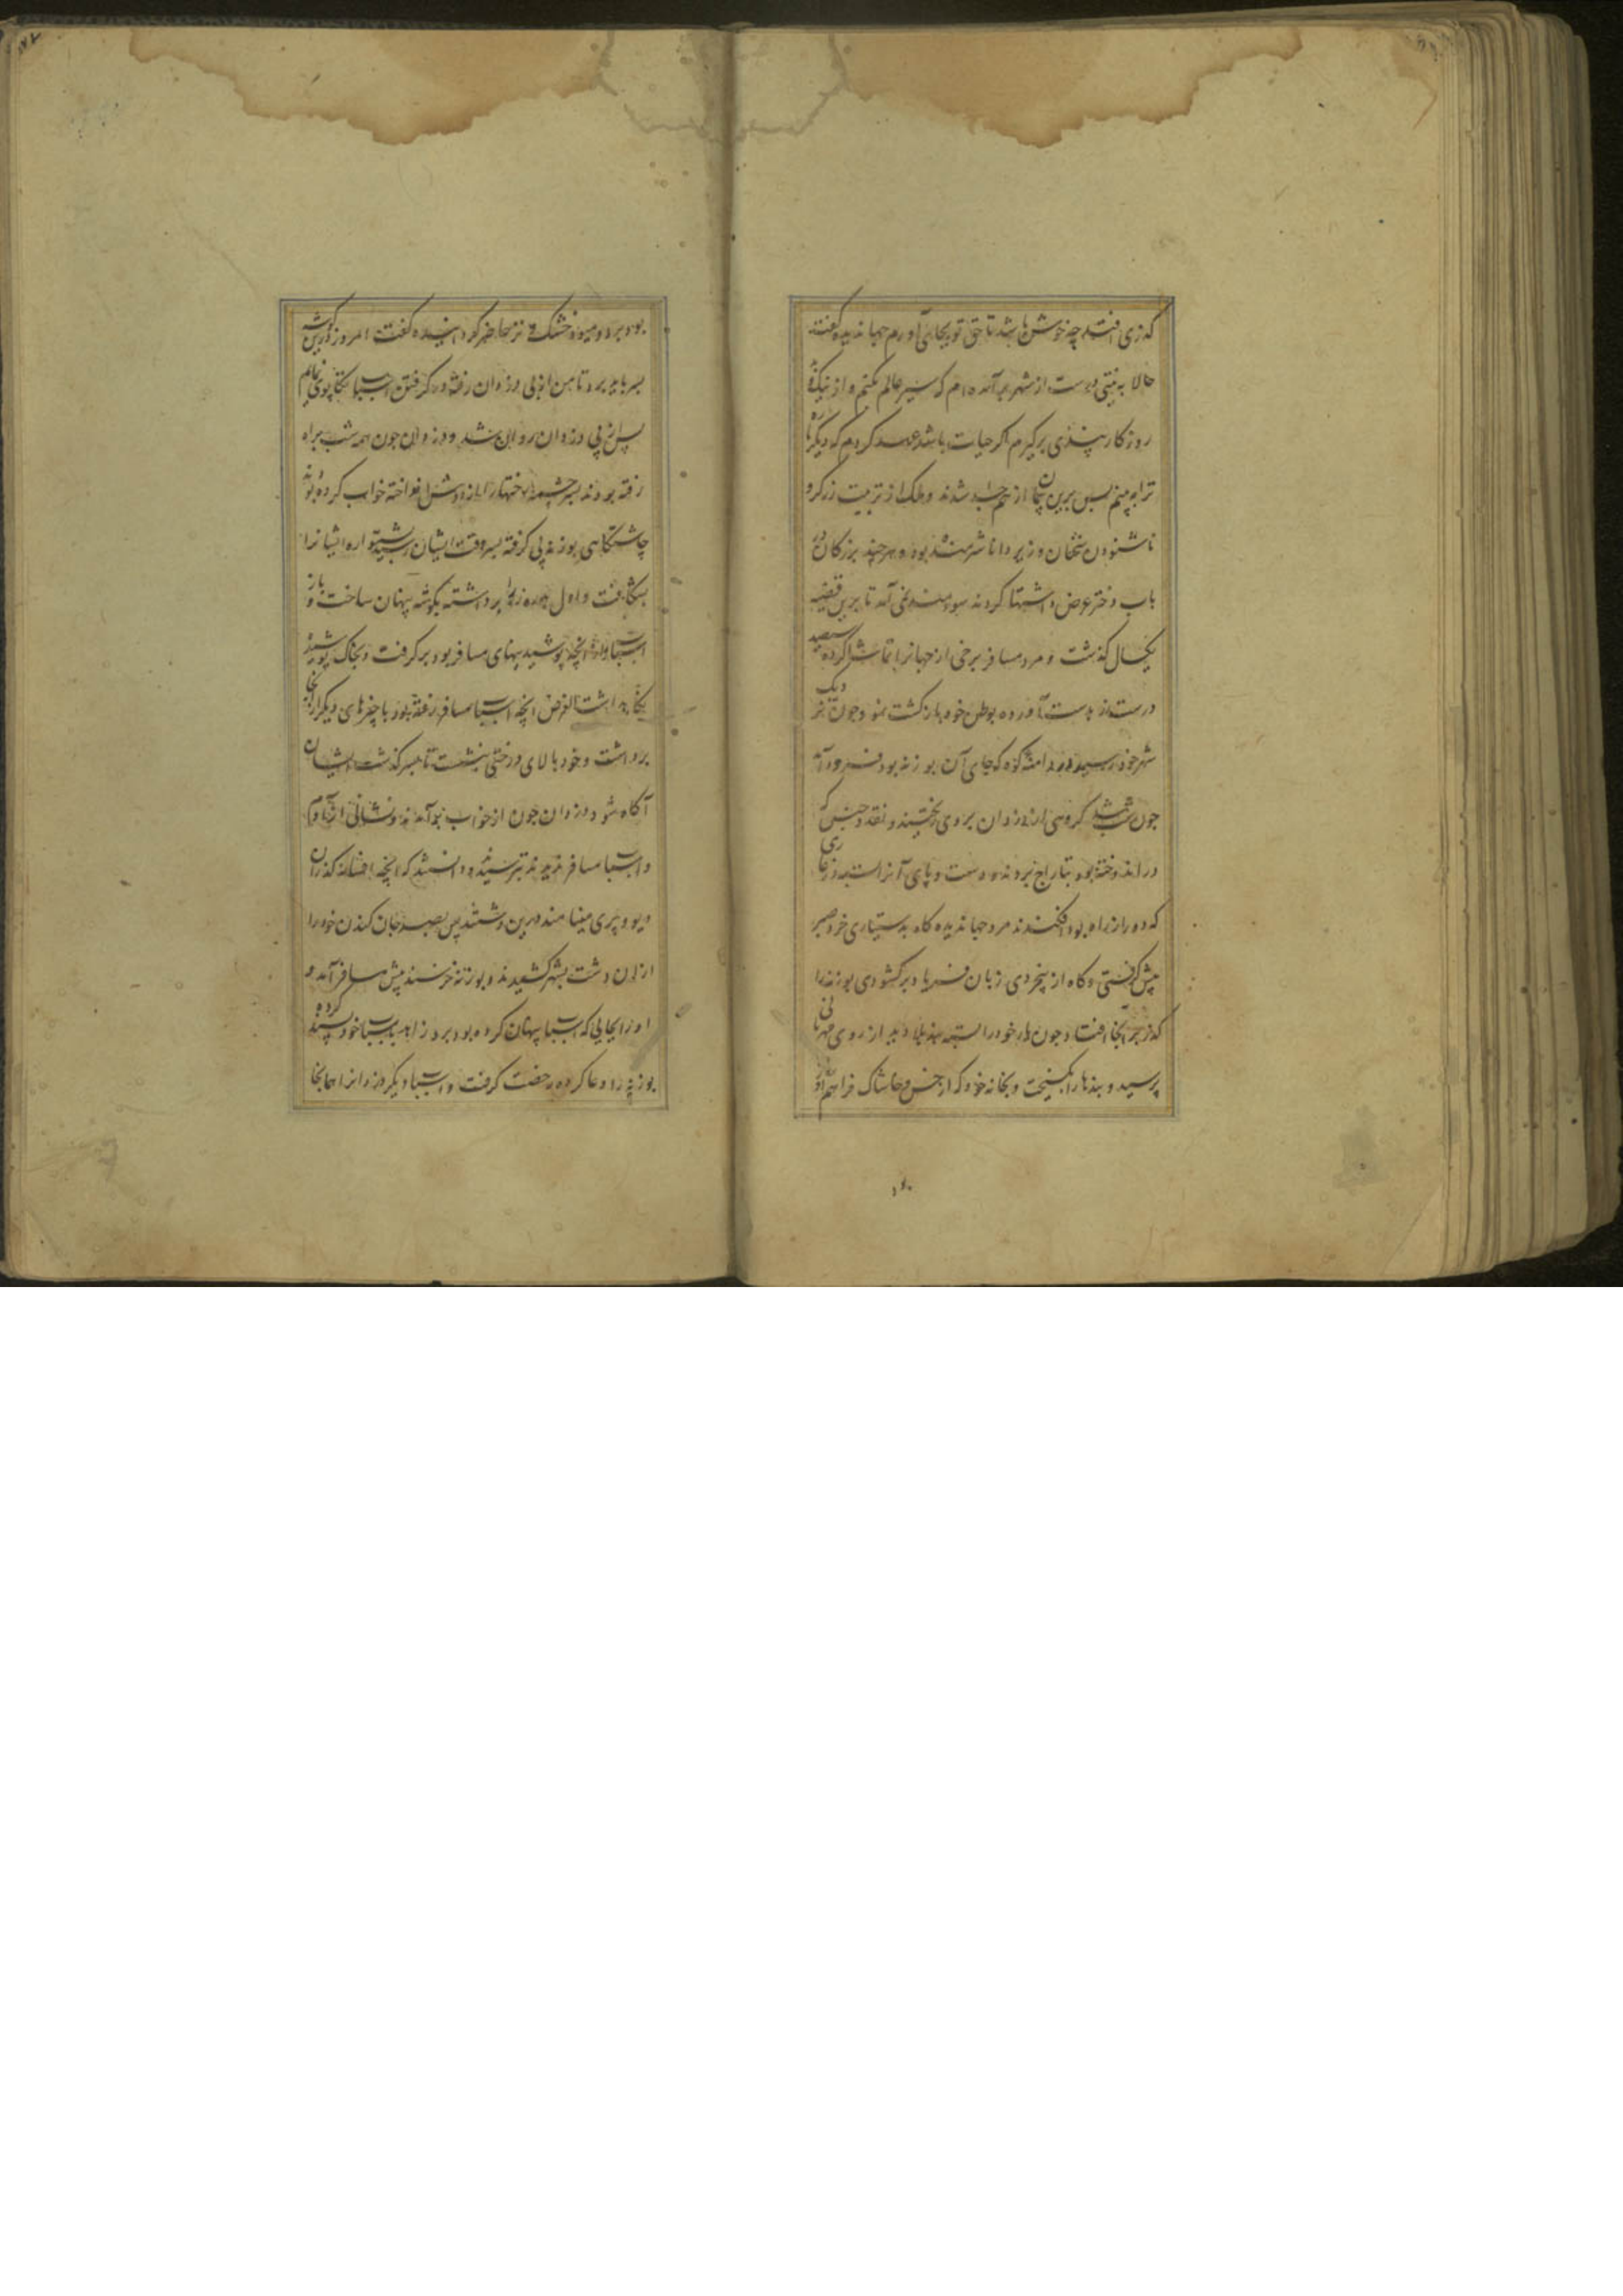 کذری افتد چه خوش باشد تا حق تو بجای آورم جهاندیده گفت
حالا به نیتی درست از شهر برآمده‌ام که سیر عالم بکنم و از نیک و بد
روزکار پندی برکیرم اکر حیات باشد عهد کردم که دیکر باره
ترا ببینم پس برین پیمان از هم جدا شدند و ملک از تربیت زرکر و
ناشنودن سخنان وزیر دانا شرمنده بود و هر چند بزرکان در
باب دختر عرض و اشتها کردند سودمند نمی آمد تا برین قضیه
یکسال کذشت و مرد مسافر برخی از جهانرا تماشا کرده
درست بدست آورده بوطن خود بازکشت نمود چون نزدیک
شهر خود رسید در دامنه کوه که جای آن بوزنه بود فرود آمد
چون شب شد کروهی از دزدان بر وی ریختند و نقد و جنس که
در اندوخته بود بتاراج بردند و دست و پای آنرا بسته در غاری
که دور از راه بود افکندند مرد جهاندیده کاه بدستیاری خرد صبر
پیش کرفتی و کاه از بیخردی زبان فریاد برکشودی بوزنه را
کذر بر آنجا افتاد چون یار خود را بسته بند بلا دید از روی مهربانی
پرسید و بندها را بکسیخت و بخانه خود که از خس و خاشاک فراهم آورده
بود برد و میوه خشک و تر حاضر کردانیده گفت امروز درین کوشه
بسر باید برد تا من از پی دزدان رفته در کرفتن اسباب تکاپوی نمایم
پس از پی دزدان روان شد و دزدان چون همه شب براه
رفته بودند بسر چشمه رختها را از دوش انداخته خواب کرده بودند
چاشتکاهی بوزنه پی کرفته بسروقت ایشان رسید پشتواره ایشانرا
بشکافت و اول بدره زر را برداشته بکوشه پنهان ساخت و باز
اسباب و آنچه پوشیدنیهای مسافر بود برکرفت و بخاک پوشید
یکجا بداشت الغرض آنچه اسباب مسافر رفته بود با چیزهای دیکر از آنجا
برداشت و خود بالای درختی بنشست تا بسر کذشت ایشان
آکاه شود دزدان چون از خواب برآمدند و نشانی از زر و
و اسباب مسافر ندیدند بترسیدند و دانستند که آنچه افسانه کذران
دیو و پری مینامند درین دشتند پس بصد جان کندن خود را
ازان دشت بشهر کشیدند و بوزنه خرسند پیش مسافر آمد و
او را بجایی که اسباب پنهان کرده بود برد زاهد اسباب خود پسند کرده
بوزنه را دعا کرده رخصت کرفت و اسباب دیکر دزدانرا همانجا
۱۶۰